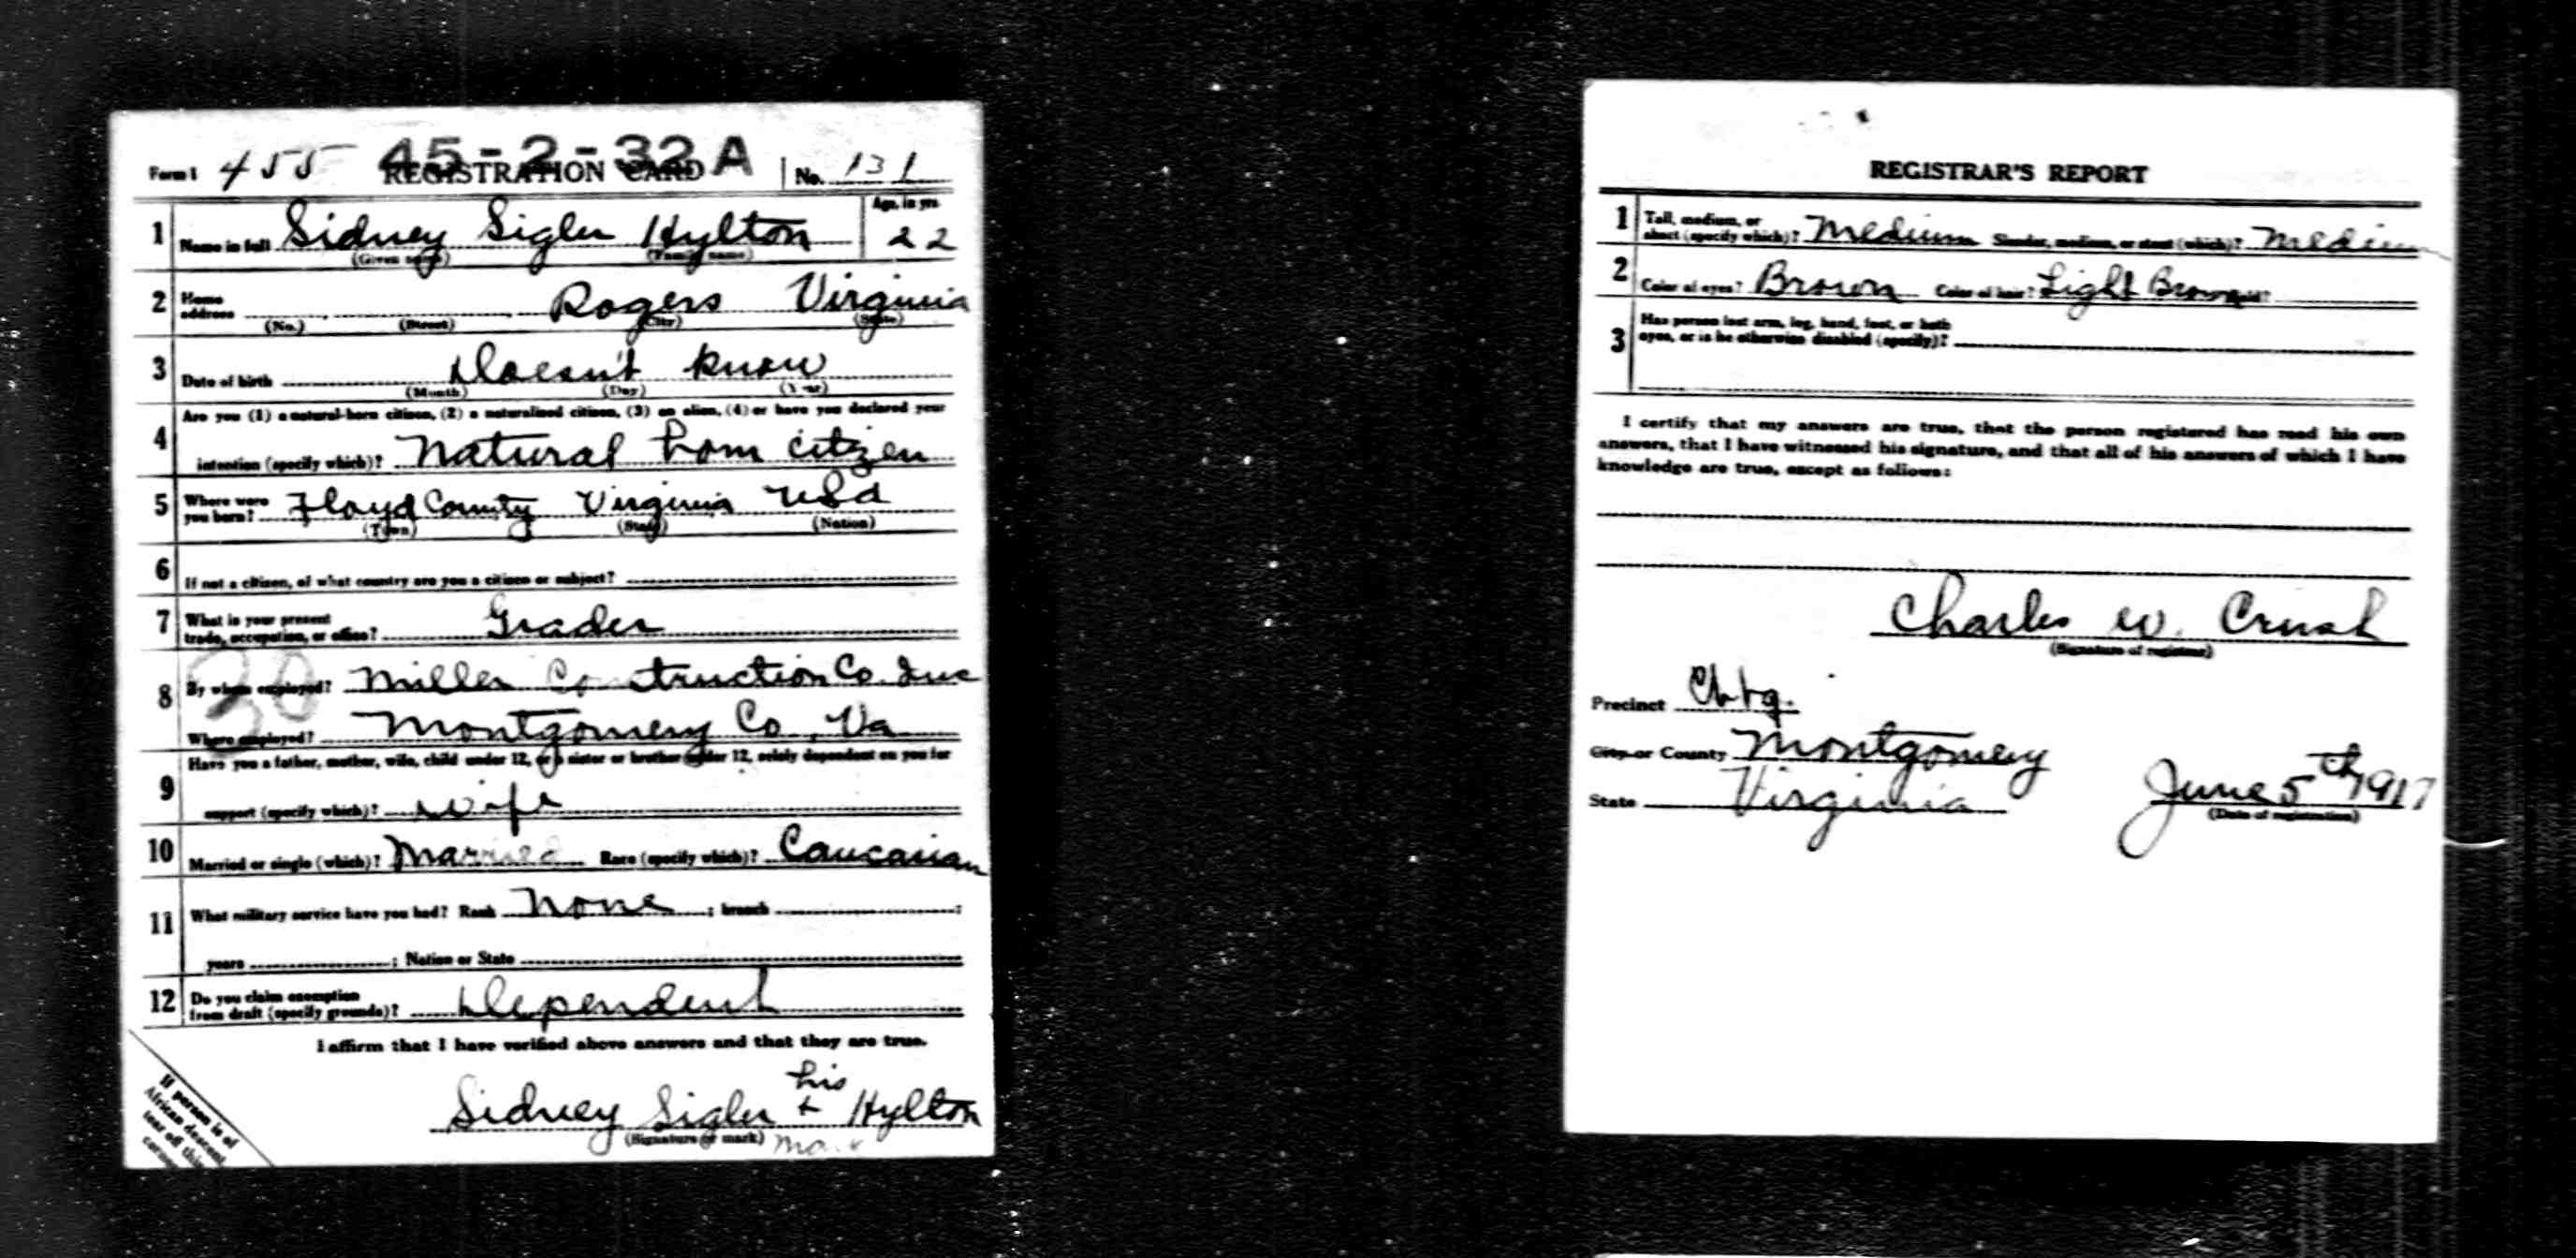 Form 1 455 45-2-32 A REGISTRATION CARD No. 131
1 Name in full Sidney Sigler Hylton Age, in yrs 22
(Given name) (Family name)
2 Home address Rogers Virginia
(No.) (Street) (City) (State)
3 Date of birth Doesn't know
(Month) (Day) (Year)
4 Are you (1) a natural-born citizen, (2) a naturalized citizen, (3) an alien, (4) or have you declared your
intention (specify which)? Natural born citizen
5 Where were you born? Floyd County Virginia USA
(Town) (State) (Nation)
6 If not a citizen, of what country are you a citizen or subject?
7 What is your present trade, occupation, or office? Grader
8 By whom employed? Miller Construction Co. Inc
30
Where employed? Montgomery Co, Va
9 Have you a father, mother, wife, child under 12, or a sister or brother under 12, solely dependent on you for
support (specify which)? Wife
10 Married or single (which)? Married Race (specify which)? Caucasian
11 What military service have you had? Rank None ; branch ;
years ; Nation or State
12 Do you claim exemption from draft (specify grounds)? Dependent
I affirm that I have verified above answers and that they are true.
his
Sidney Sigler + Hylton
(Signature or mark) mark
If person is of
African descent,
tear off this
corner
REGISTRAR'S REPORT
1 Tall, medium, or short (specify which)? Medium Slender, medium, or stout (which)? Medium
2 Color of eyes? Brown Color of hair? Light Brown Bald?
3 Has person lost arm, leg, hand, foot, or both
eyes, or is he otherwise disabled (specify)?
I certify that my answers are true, that the person registered has read his own
answers, that I have witnessed his signature, and that all of his answers of which I have
knowledge are true, except as follows:
Charles W. Crush
(Signature of registrar)
Precinct Cbtg.
City or County Montgomery
State Virginia June 5th 1917
(Date of registration)